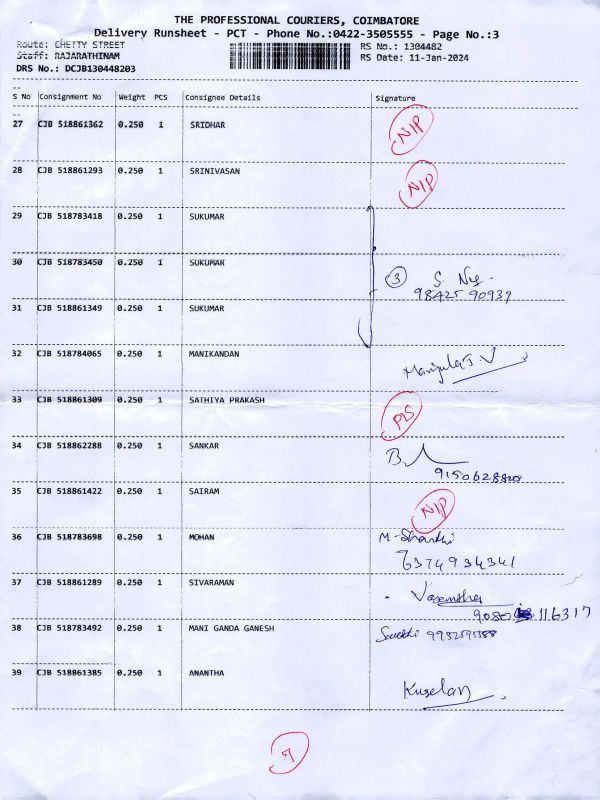 THE PROFESSIONAL COURIERS, COIMBATORE
Delivery Runsheet - PCT - Phone No.:0422-3505555 - Page No.:3
Route: CHETTY STREET RS No.: 1304482
Staff: RAJARATHINAM RS Date: 11-Jan-2024
DRS No.: DCJB130448203
S No Consignment No Weight PCS Consignee Details Signature
27 CJB 518861362 0.250 1 SRIDHAR N/P
28 CJB 518861293 0.250 1 SRINIVASAN N/P
29 CJB 518783418 0.250 1 SUKUMAR
30 CJB 518783450 0.250 1 SUKUMAR 3
98425 90939
31 CJB 518861349 0.250 1 SUKUMAR
32 CJB 518784065 0.250 1 MANIKANDAN
33 CJB 518861309 0.250 1 SATHIYA PRAKASH
34 CJB 518862288 0.250 1 SANKAR
35 CJB 518861422 0.250 1 SAIRAM N/P
36 CJB 518783698 0.250 1 MOHAN M-Shanthi
6374934341
37 CJB 518861289 0.250 1 SIVARAMAN
38 CJB 518783492 0.250 1 MANI GANDA GANESH
39 CJB 518861385 0.250 1 ANANTHA Kuselan